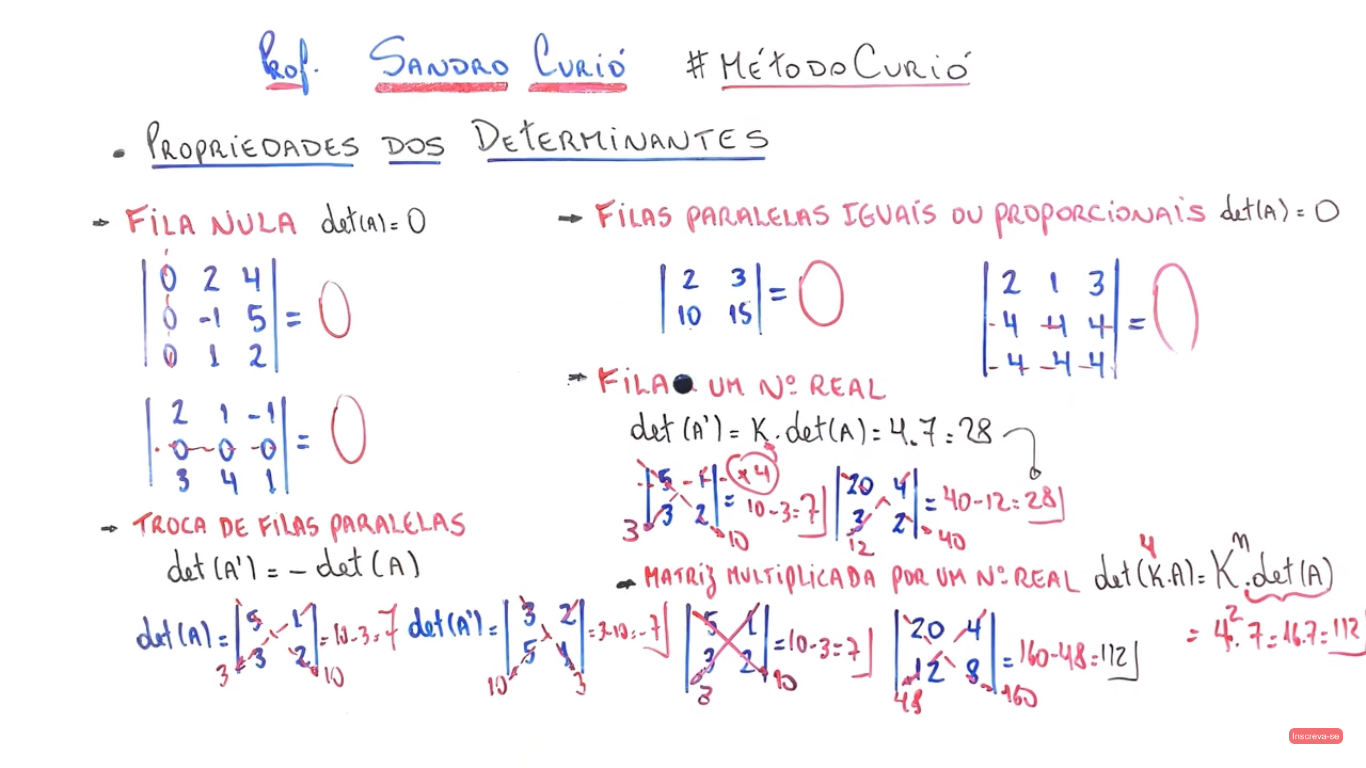 Prof. SANDRO CURIÓ #MÉTODOCURIÓ
• PROPRIEDADES DOS DETERMINANTES
→ FILA NULA det(A) = 0
|0 2 4|
|0 -1 5| = 0
|0 1 2|
|2 1 -1|
|0 0 0| = 0
|3 4 1|
→ TROCA DE FILAS PARALELAS
det(A') = - det(A)
det(A) = |5 1| = 10-3=7 det(A') = |3 2| = 3-10=-7
|3 2| |5 1|
3 10 10 3
→ FILAS PARALELAS IGUAIS OU PROPORCIONAIS det(A) = 0
|2 3| = 0
|10 15|
|2 1 3|
|4 4 4| = 0
|4 4 4|
→ FILA UM Nº REAL
det(A') = K.det(A) = 4.7 = 28
|5 1| x4 = 10-3=7 |20 4| = 40-12=28
|3 2| |3 2|
3 10 12 40
→ MATRIZ MULTIPLICADA POR UM Nº REAL det(K.A) = Kⁿ.det(A)
4
= 4².7=16.7=112
|5 1| = 10-3=7 |20 4| = 160-48=112
|3 2| |12 8|
3 10 48 160
Inscreva-se